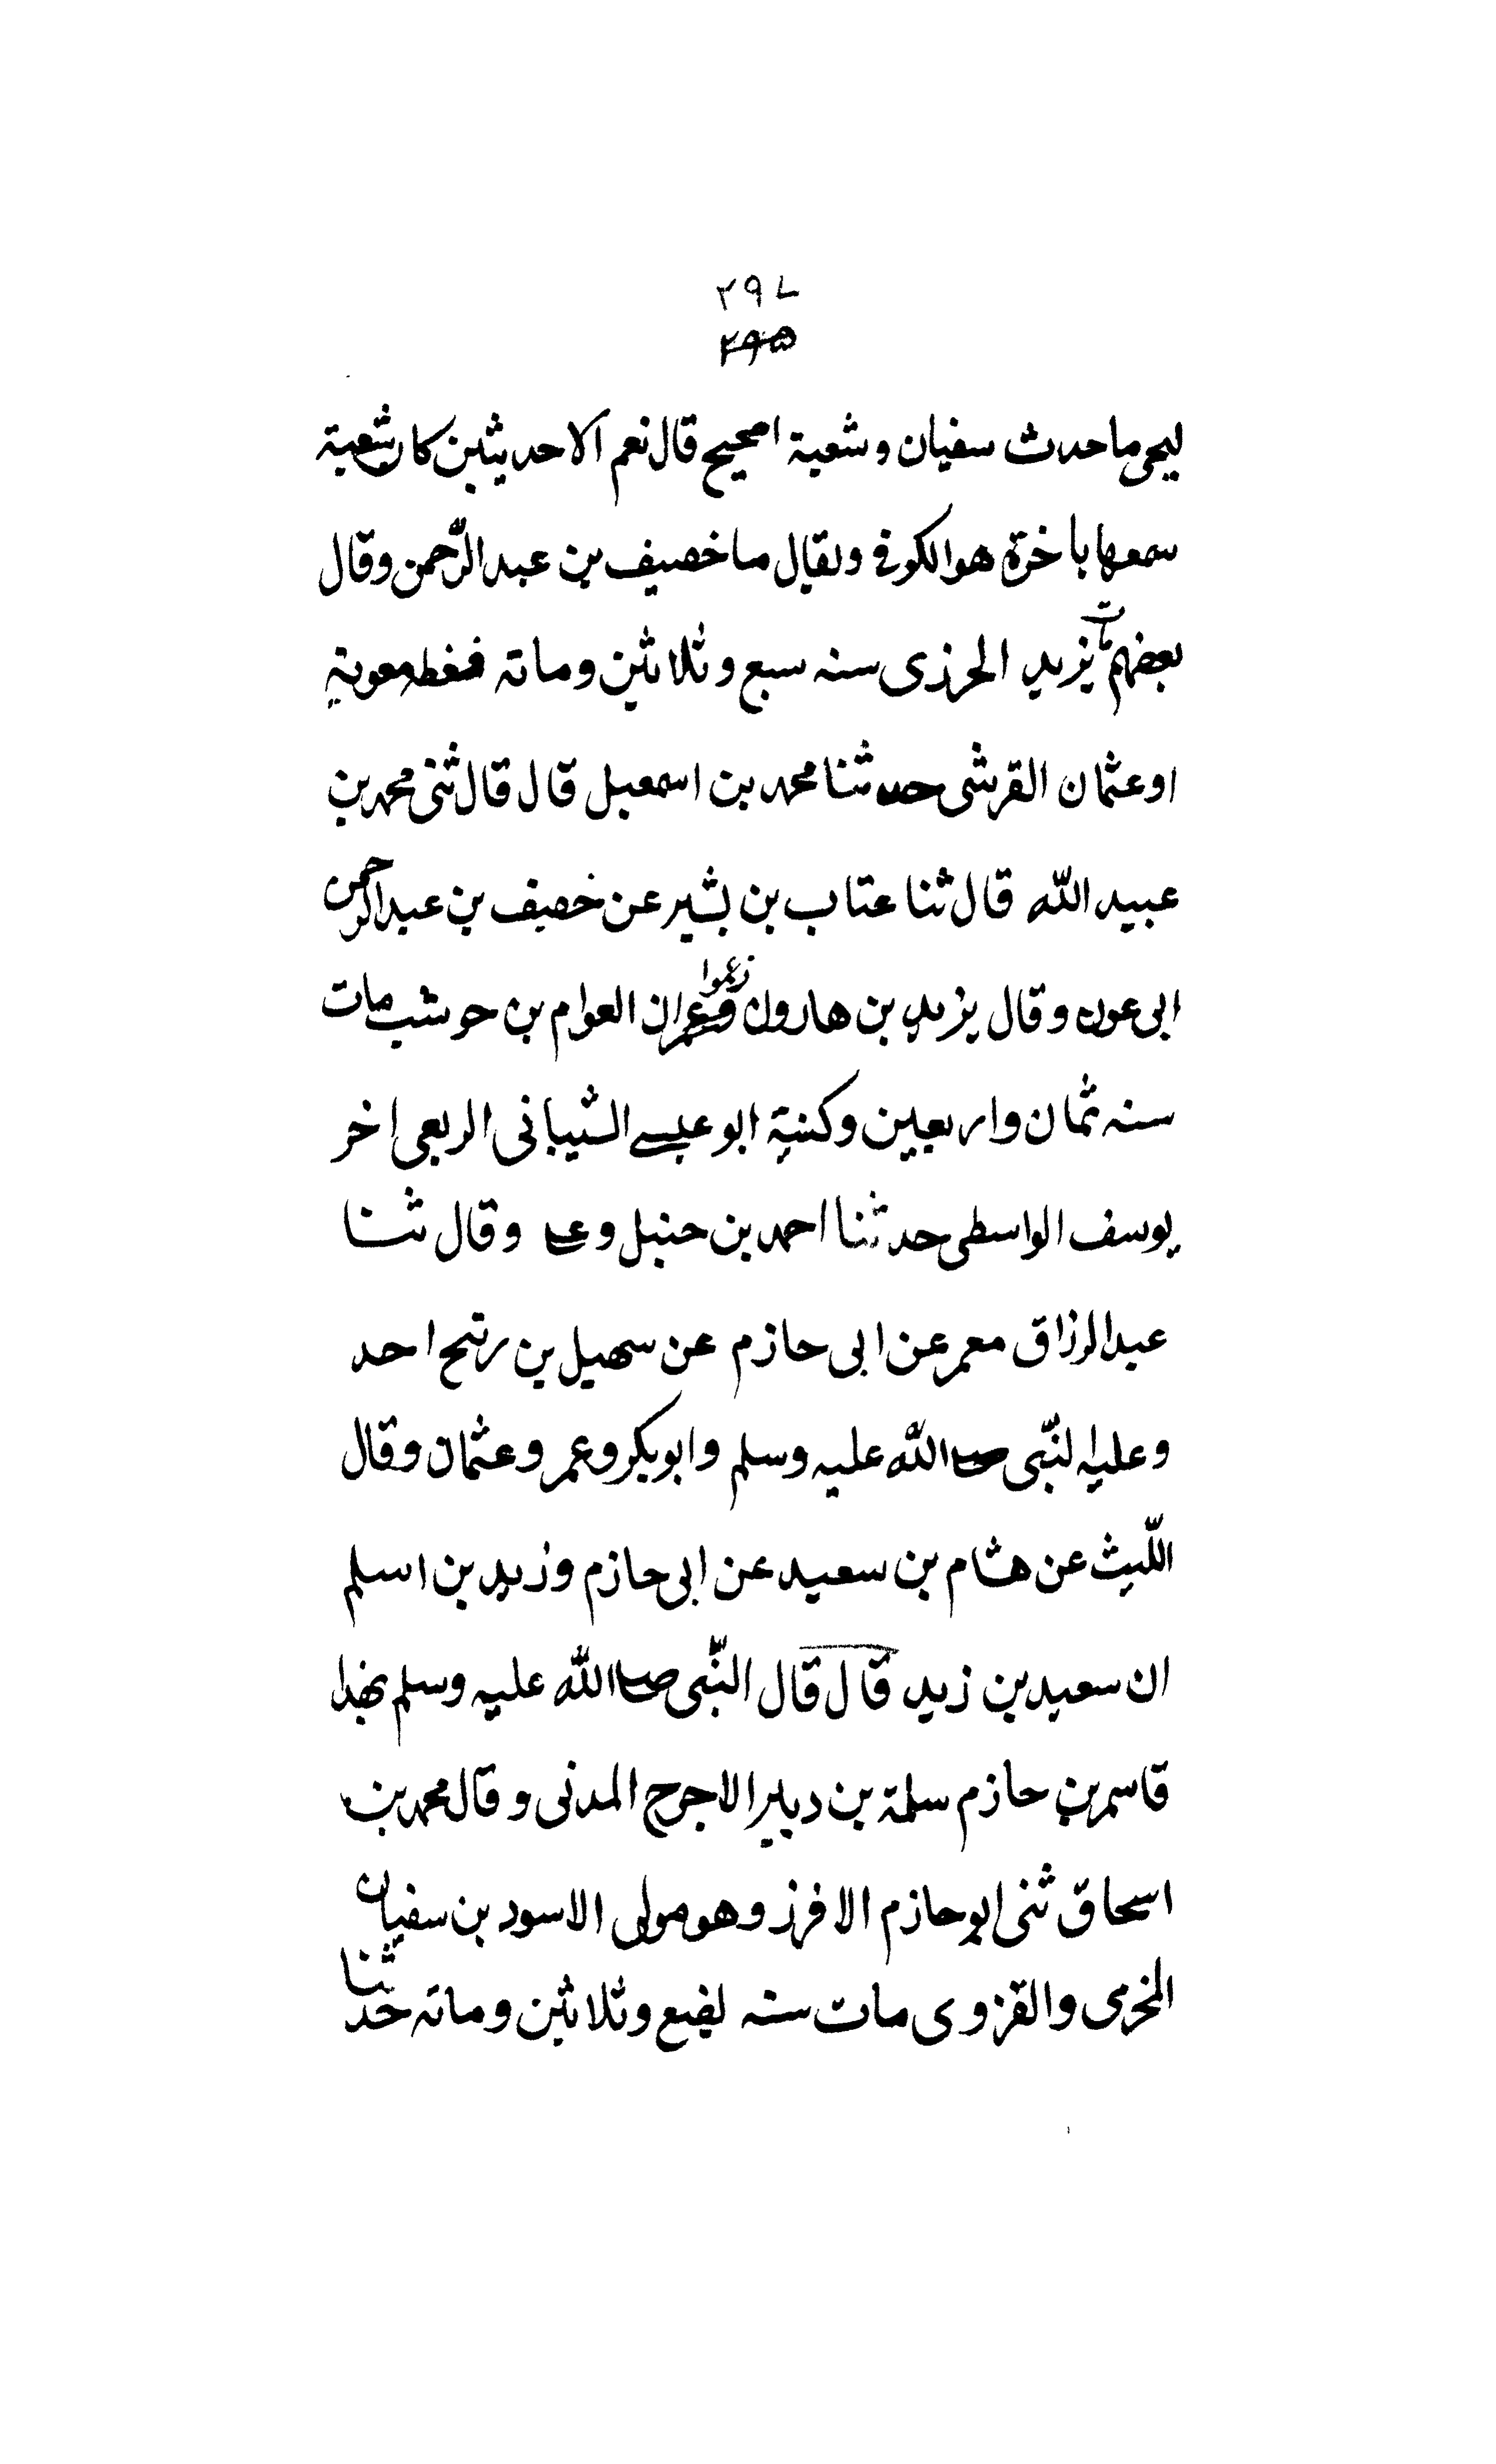 ٢٩٧
٢٩٥
ليحيى ما حدث سفيان وشعبة اصحيح قال نعم الا حديثين كان شعبة
سمعها باخرة هو الكوفى ويقال ما خصيف بن عبد الرّحمن وقال
بعضهم مات يزيد الحرزى سنه سبع وثلاثين وماته معوية
او عثمان القرشى حدثنا محمد بن اسمعيل قال قال ثنى محمد بن
عبيد اللّه قال ثنا عتاب بن بشير عن خصيف بن عبد الرحمن
ابى عون وقال يزيد بن هارون زعموا ان العوام بن حوشب مات
سنه ثمان واربعين وكنية ابو عيسے الشيبانى الربعى اخر
يوسف الواسطى حدثنا احمد بن حنبل وقال ثنا
عبد الرزاق معمر عن ابى حازم عن سهيل بن احد
وعليه النّبى صلى اللّه عليه وسلم وابو بكر وعمر وعثمان وقال
اللّيث عن هشام بن سعيد عن ابى حازم وزيد بن اسلم
ان سعيد بن زيد قال قال النّبى صلى اللّه عليه وسلم بهذا
قاسم بن حازم سلمة بن دينير الاجرج المدنى وقال محمد بن
اسحاق ثنى ابو حازم الافرز وهو مولى الاسود بن سفيان
المخرمى والقزوى مات سنه بضع وثلاثين وماته حدثنا